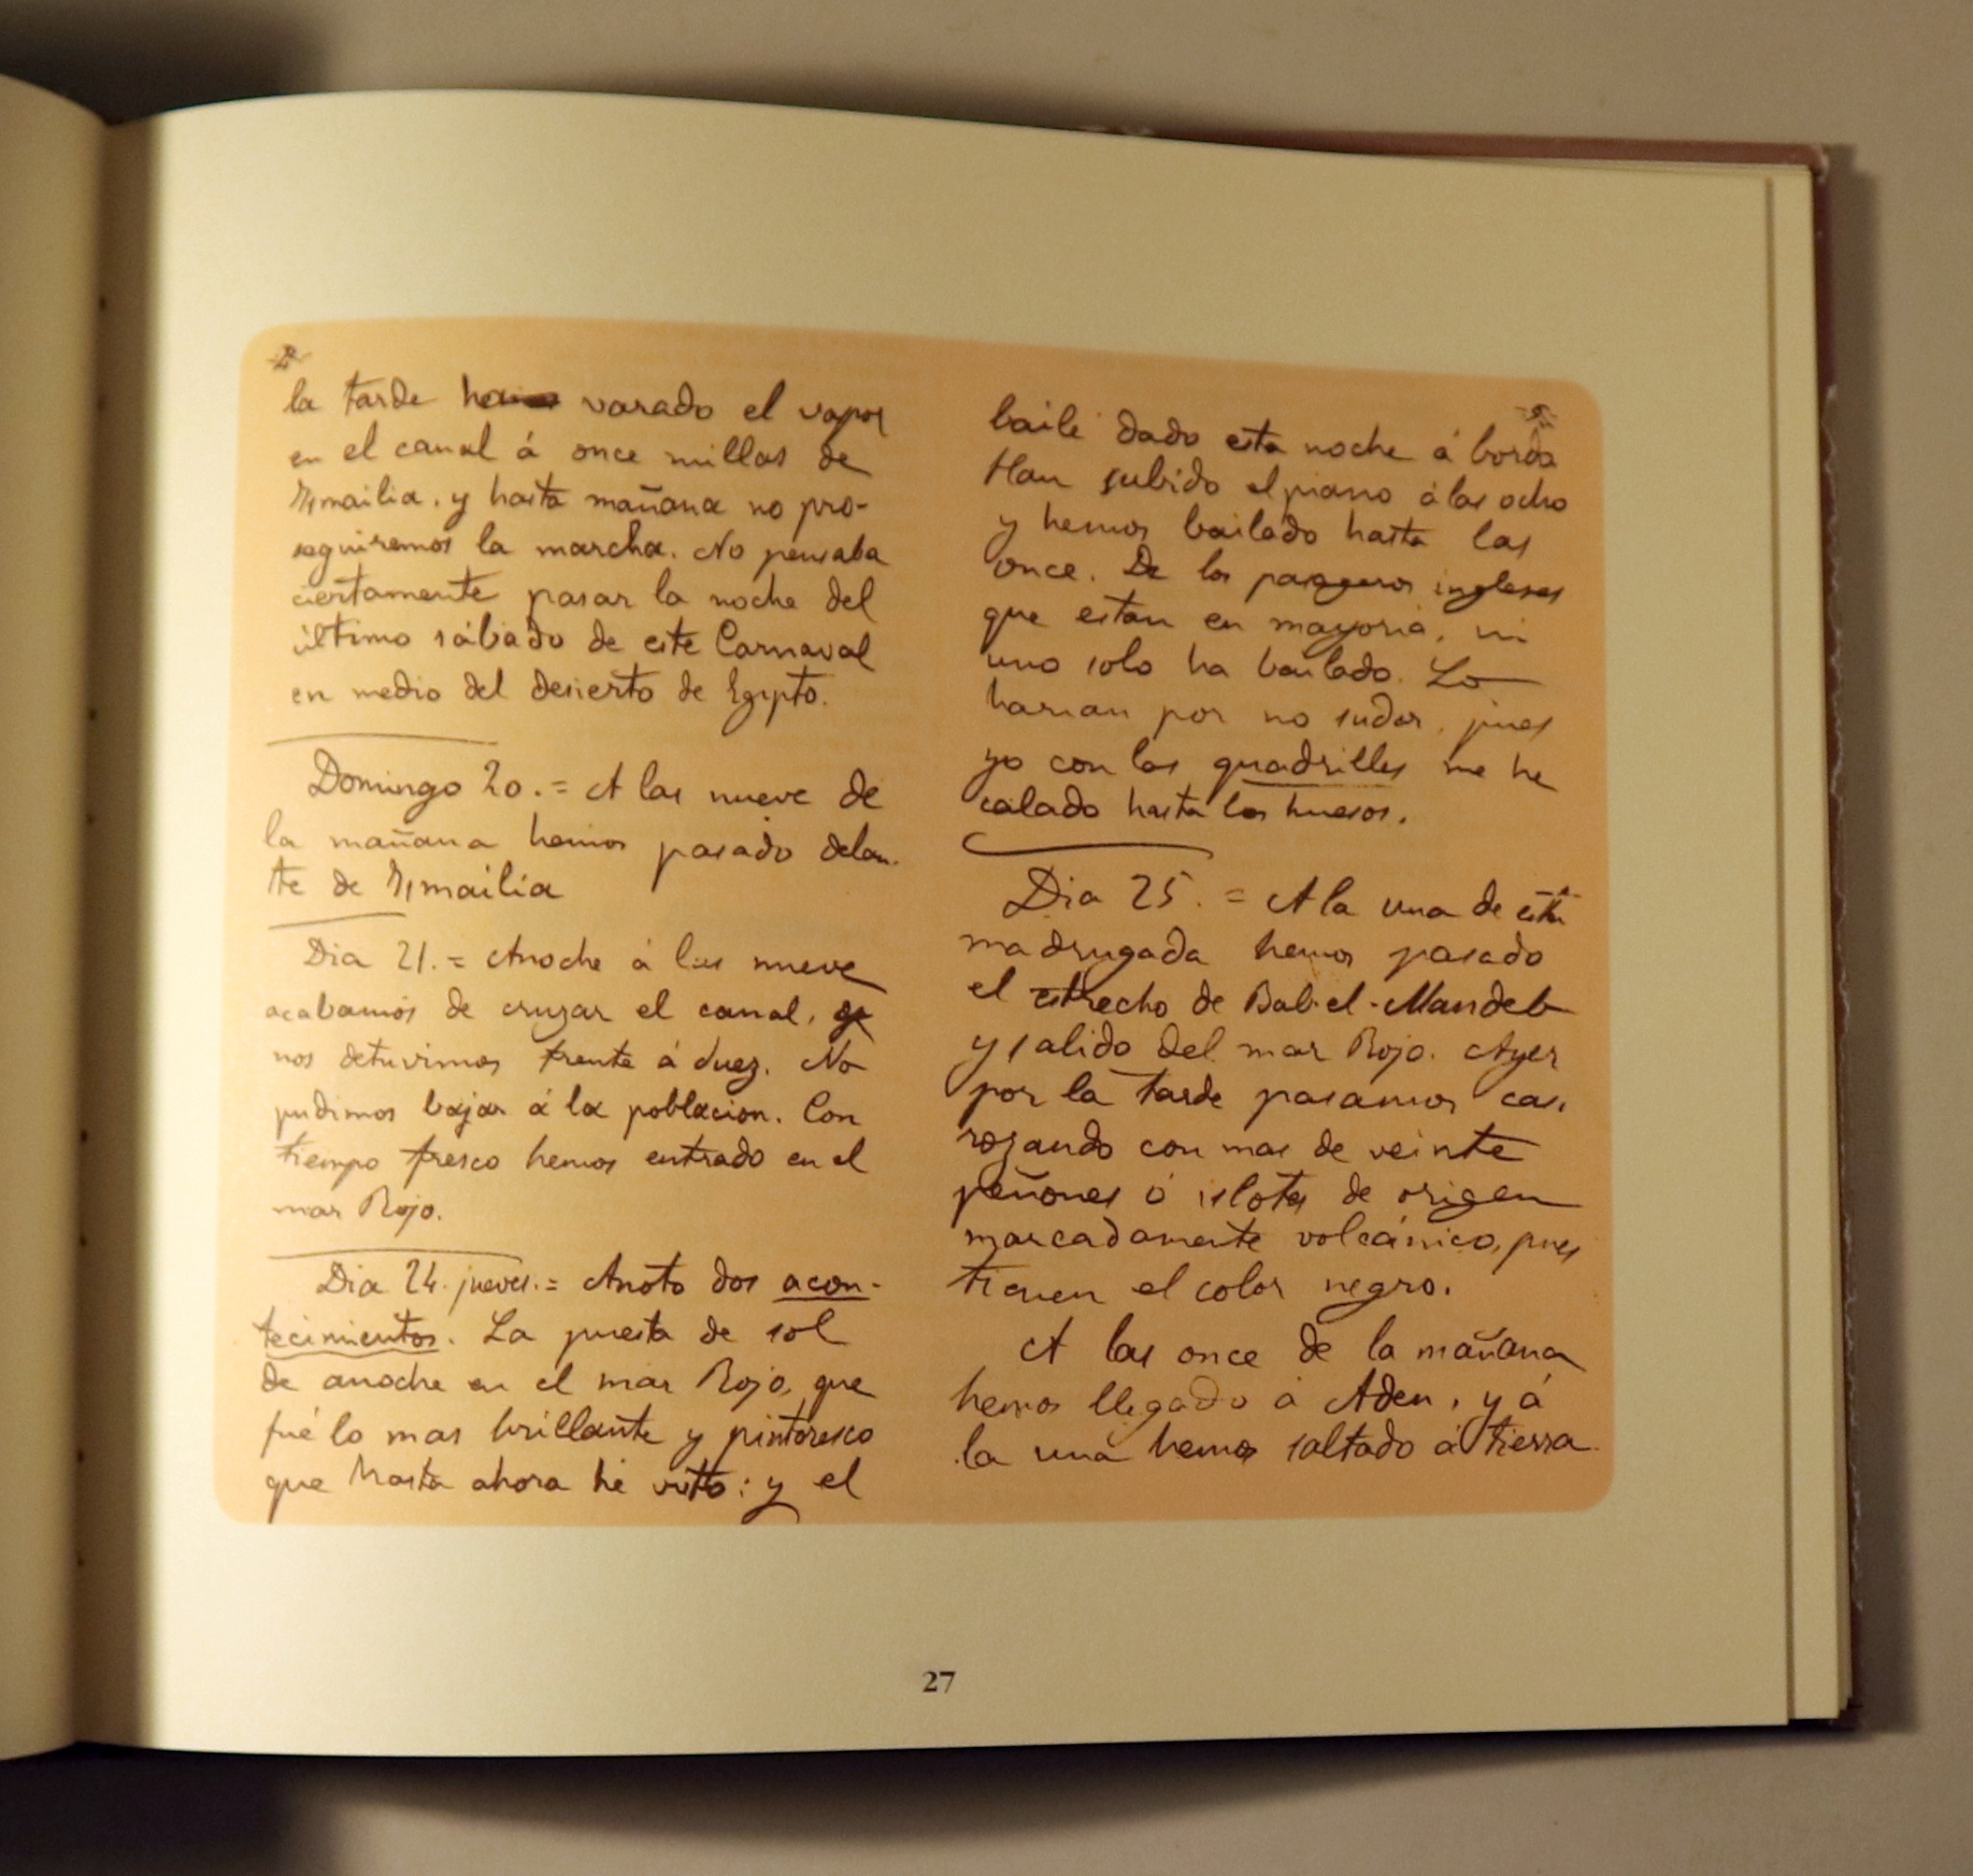 la tarde ha varado el vapor
en el canal á once millas de
Ysmailia. y hasta mañana no pro-
seguiremos la marcha. No pensaba
ciertamente pasar la noche del
último sábado de este Carnaval
en medio del desierto de Egipto.
Domingo 20. = A las nueve de
la mañana hemos pasado delan-
te de Ysmailia
Dia 21. = Anoche á las nueve
acabamos de cruzar el canal,
nos detuvimos frente á Suez. No
pudimos bajar á la poblacion. Con
tiempo fresco hemos entrado en el
mar Rojo.
Dia 24. jueves. = Anoto dos acon-
tecimientos. La puesta de sol
de anoche en el mar Rojo, que
fué lo mas brillante y pintoresco
que hasta ahora hé visto: y el
baile dado esta noche á bordo
Han subido el piano á las ocho
y hemos bailado hasta las
once. De los pasageros ingleses
que estan en mayoria, ni
uno solo ha bailado. Lo
harian por no sudar, pues
yo con los quadrilles me he
calado hasta los huesos.
Dia 25. = A la una de esta
madrugada hemos pasado
el estrecho de Bab-el-Mandeb
y salido del mar Rojo. Ayer
por la tarde pasamos casi
rozando con mas de veinte
peñones ó islotes de origen
marcadamente volcánico, pues
tienen el color negro.
A las once de la mañana
hemos llegado á Aden, y á
la una hemos saltado á tierra
27